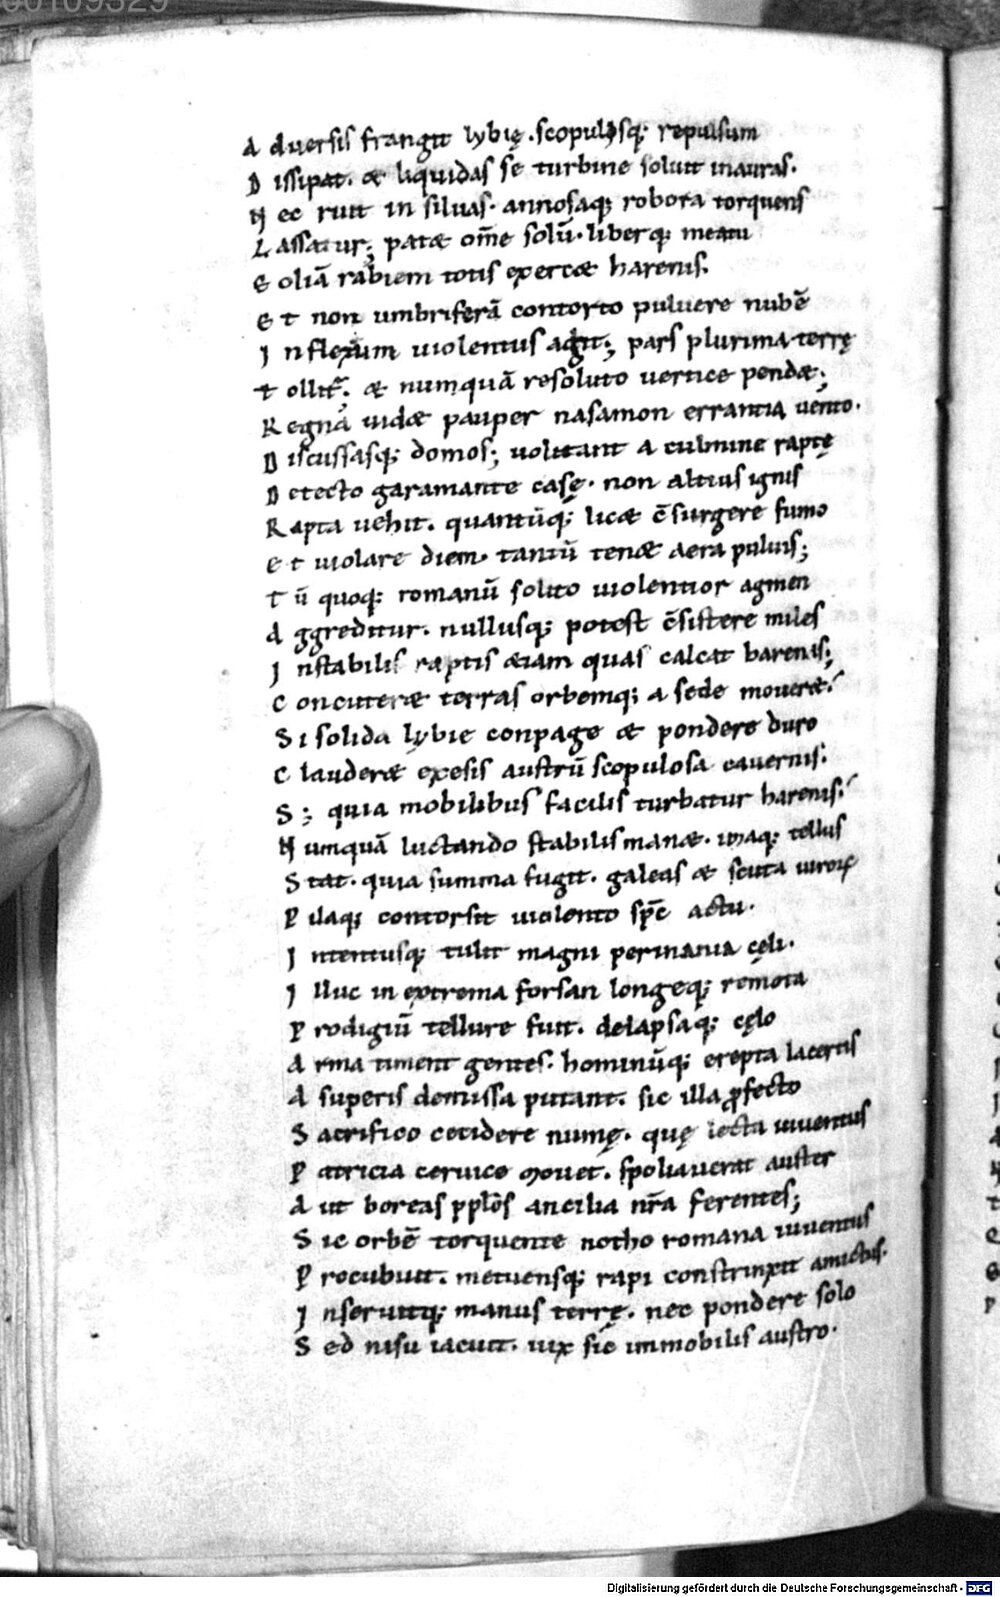 00109329
A duersis frangit lybię .scopulosq; repulsum
D issipat. & liquidas se turbine soluit inauras.
N ec ruit in siluas. annosaq; robora torquens
L assatur; pat& om̄e solū. liberq; meatu
E oliā rabiem totis exerc& harenis.
E t non umbriferā contorto puluere nubē
I n flexum uiolentus agit; pars plurima terrę
T ollit᷑; & numquā resoluto uertice pend&;
R egna uid& pauper nasamon errantia uento.
D iscussasq; domos; uolitant a culmine raptę
D etecto garamante casę. non altius ignis
R apta uehit. quantūq; lic& c̄surgere fumo
E t uiolare diem. tantū ten& aera puluis;
T ū quoq; romanū solito uiolentior agmen
A ggreditur. nullusq; potest c̄sistere miles
I nstabilis raptis &iam quas calcat harenis;
C oncuter& terras orbemq; a sede mouer&.
S i solida lybie conpage & pondere duro
C lauder& exesis austrū scopulosa cauernis.
S ; quia mobilibus facilis turbatur harenis.
N umquā luctando stabilis man&. imaq; tellus
S tat. quia summa fugit. galeas & scuta uiroꝝ
P ilaq; contorsit uiolento sp̄c actu.
I ntentusq; tulit magni per inania cęli.
I lluc in extrema forsan longeq; remota
P rodigiū tellure fuit. delapsaq; cęlo
A rma timent gentes. hominūq; erepta lacertis
A superis demissa putant. sic illa ꝓfecto
S acrifico cecidere numę. quę lecta iuuentus
P atricia ceruice mouet. spoliauerat auster
A ut boreas pplōs ancilia nr̄a ferentes;
S ic orbē torquente notho romana iuuentus
P rocubuit. metuensq; rapi constrinxit amictus.
I nseruitq; manus terrę. nec pondere solo
S ed nisu iacuit. uix sic immobilis austro.
Digitalisierung gefördert durch die Deutsche Forschungsgemeinschaft - DFG